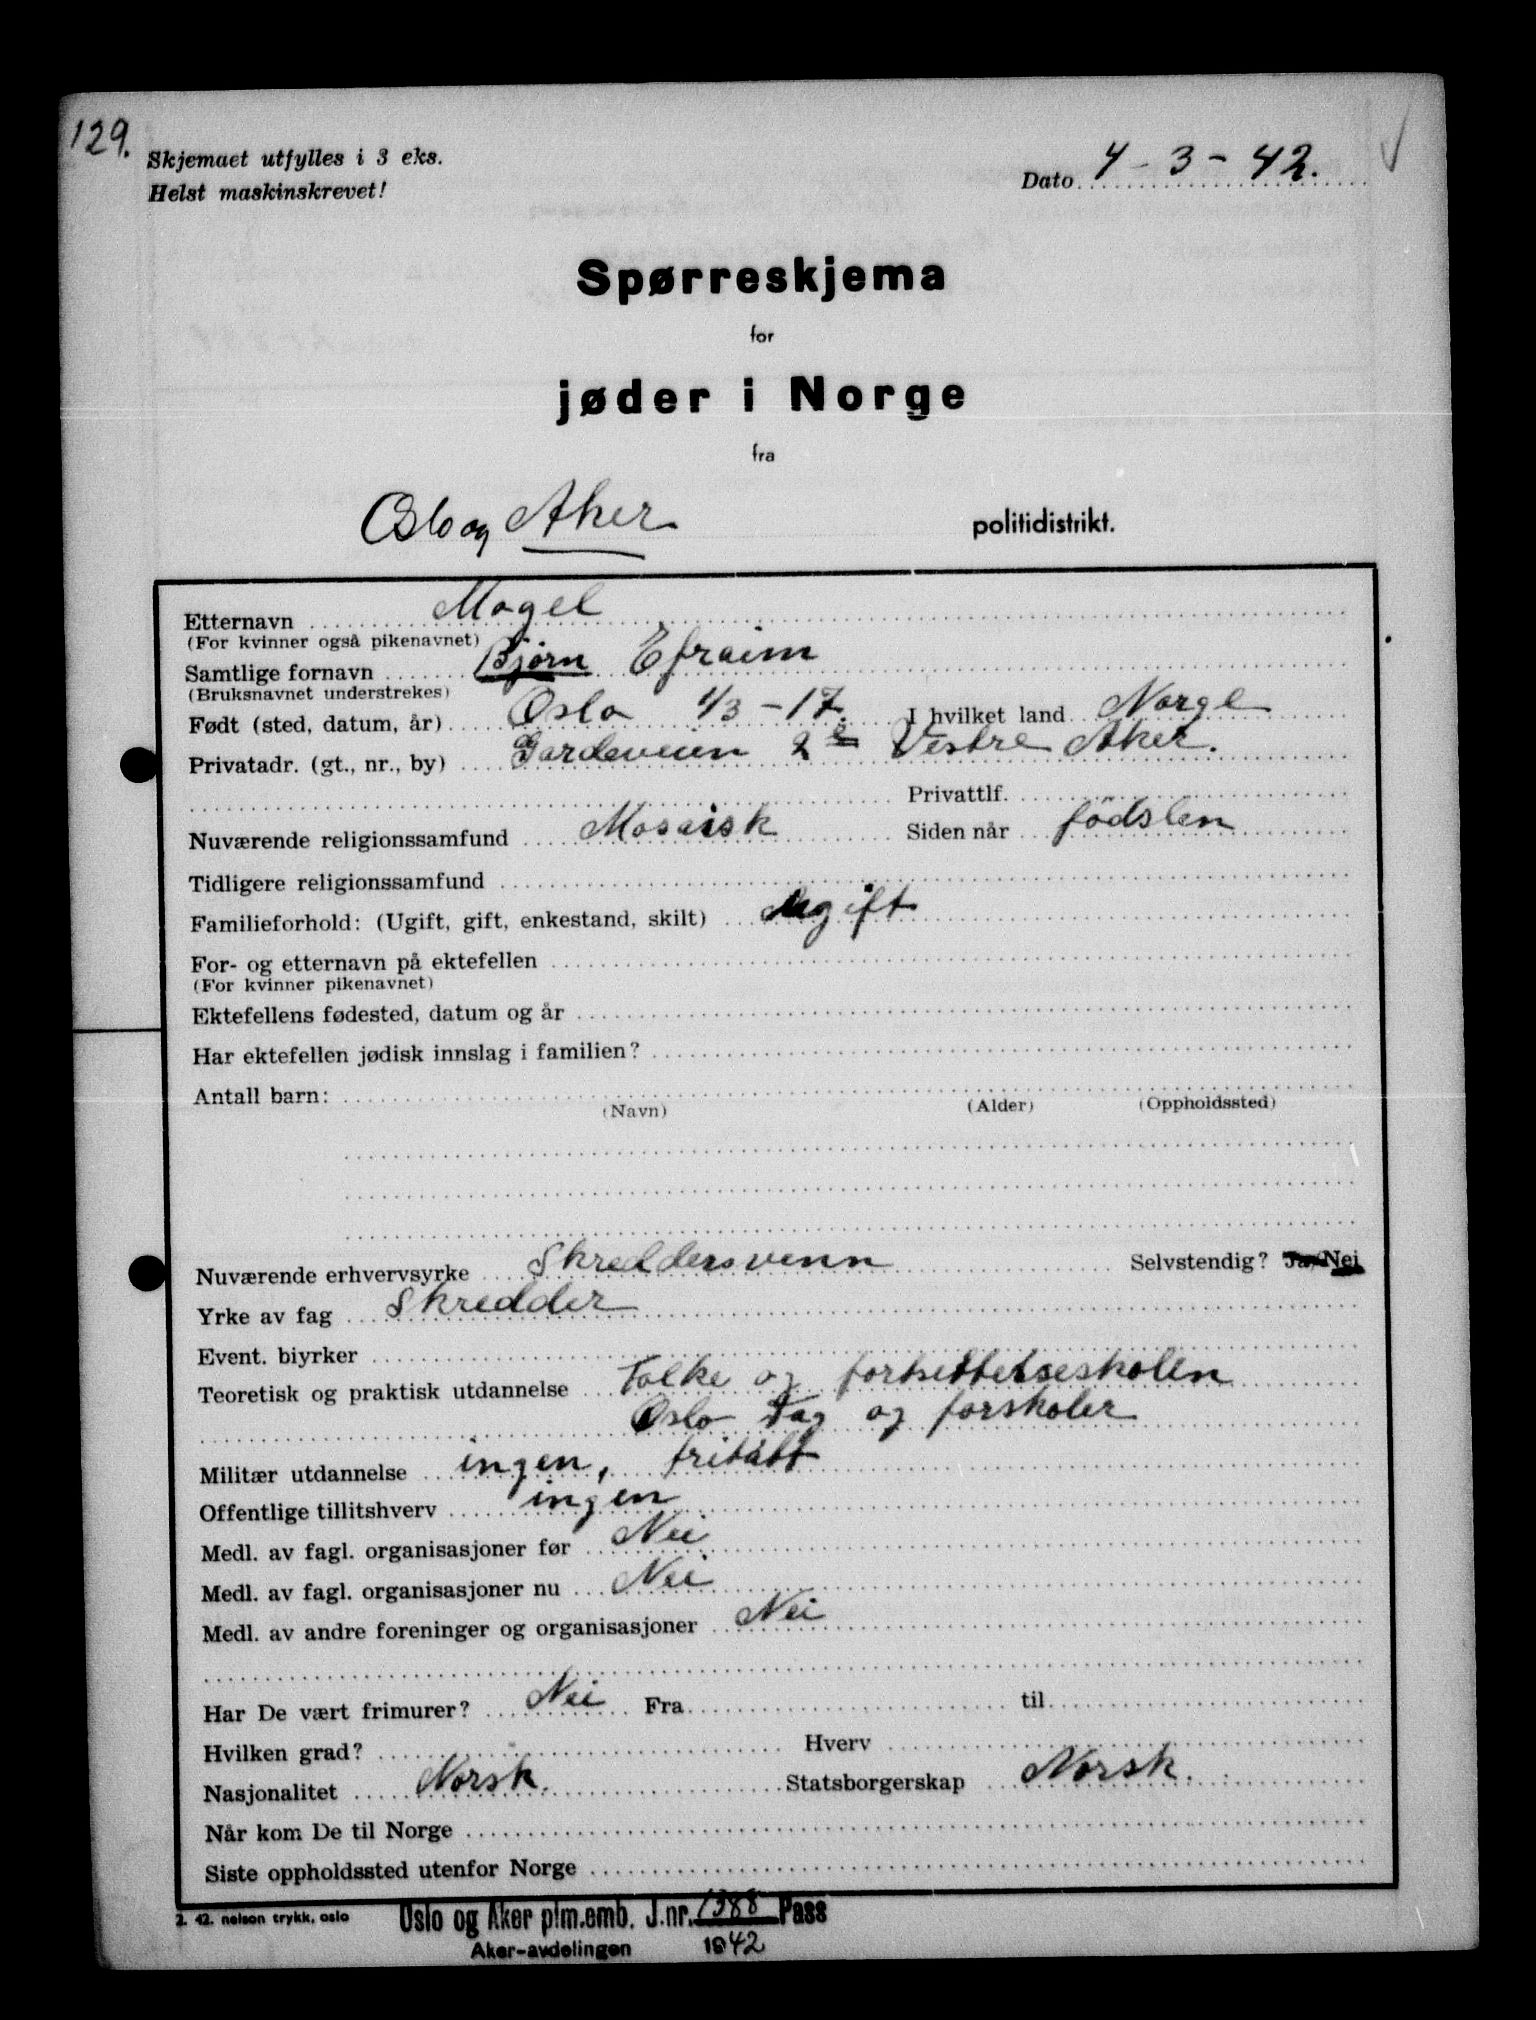 129.
Skjemaet utfylles i 3 eks.
Helst maskinskrevet!
Dato 4 - 3 - 42.
Spørreskjema
for
jøder i Norge
fra
Oslo og Aker politidistrikt.
Etternavn Mogel
(For kvinner også pikenavnet)
Samtlige fornavn Bjørn Efraim
(Bruksnavnet understrekes)
Født (sted, datum, år) Oslo 1/3 - 17. I hvilket land Norge
Privatadr. (gt., nr., by) Gardeveien 2 Vestre Aker.
Privattlf.
Nuværende religionssamfund Mosaisk Siden når födslen
Tidligere religionssamfund
Familieforhold: (Ugift, gift, enkestand, skilt) Ugift
For- og etternavn på ektefellen
(For kvinner pikenavnet)
Ektefellens fødested, datum og år
Har ektefellen jødisk innslag i familien?
Antall barn:
(Navn) (Alder) (Oppholdssted)
Nuværende erhvervsyrke Skreddersvenn Selvstendig? Ja/Nei
Yrke av fag Skredder
Event. biyrker
Teoretisk og praktisk utdannelse Folke og fortsettelseskolen
Oslo Fag og forskoler
Militær utdannelse ingen, fritatt
Offentlige tillitshverv ingen
Medl. av fagl. organisasjoner før Nei
Medl. av fagl. organisasjoner nu Nei
Medl. av andre foreninger og organisasjoner Nei
Har De vært frimurer? Nei Fra til
Hvilken grad? Hverv
Nasjonalitet Norsk. Statsborgerskap Norsk.
Når kom De til Norge
Siste oppholdssted utenfor Norge
2. 42. nelson trykk, oslo
Oslo og Aker plm.emb. J.nr. 1388 Pass
Aker-avdelingen 1942